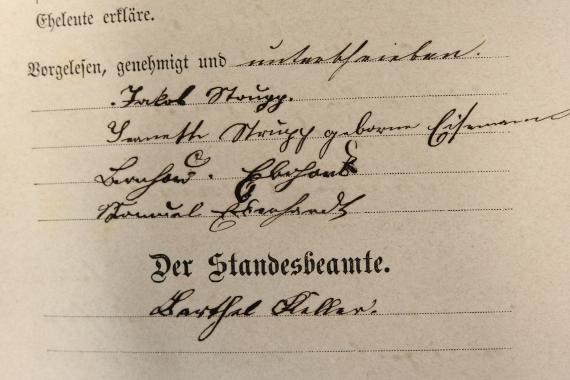 Eheleute erkläre.
Vorgelesen, genehmigt und unterschrieben.
Jakob Strupp.
Jeanette Strupp geborne Eisemann
Bernhard Eberhardt
Samuel Eberhardt
Der Standesbeamte.
Barthel Keller.